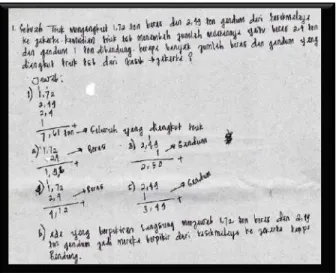 1. Sebuah Truk mengangkut 1,72 ton beras dan 2,49 ton gandum dari tasikmalaya
ke jakarta kemudian truk tsb menambah jumlah muatannya yaitu beras 2,4 ton
dan gandum 1 ton dibandung. berapa banyak jumlah beras dan gandum yang
diangkut truk tsb dari tasik → jakarta ?
Jawab:
1) 1,72
2,49
2,4
1 +
7,61 ton → Seluruh yang diangkut truk
2) 1,72
24 → Beras
+
1,96
3) 2,49
1 → Gandum
+
2,50
4) 1,72
2,4 → Beras
+
4,12
5) 2,49
1 → Gandum
+
3,49
6) ada yang berpikiran langsung menjawab 1,72 ton beras dan 2,49
ton gandum jadi mereka berpikir dari tasikmalaya ke jakarta tanpa
Bandung.